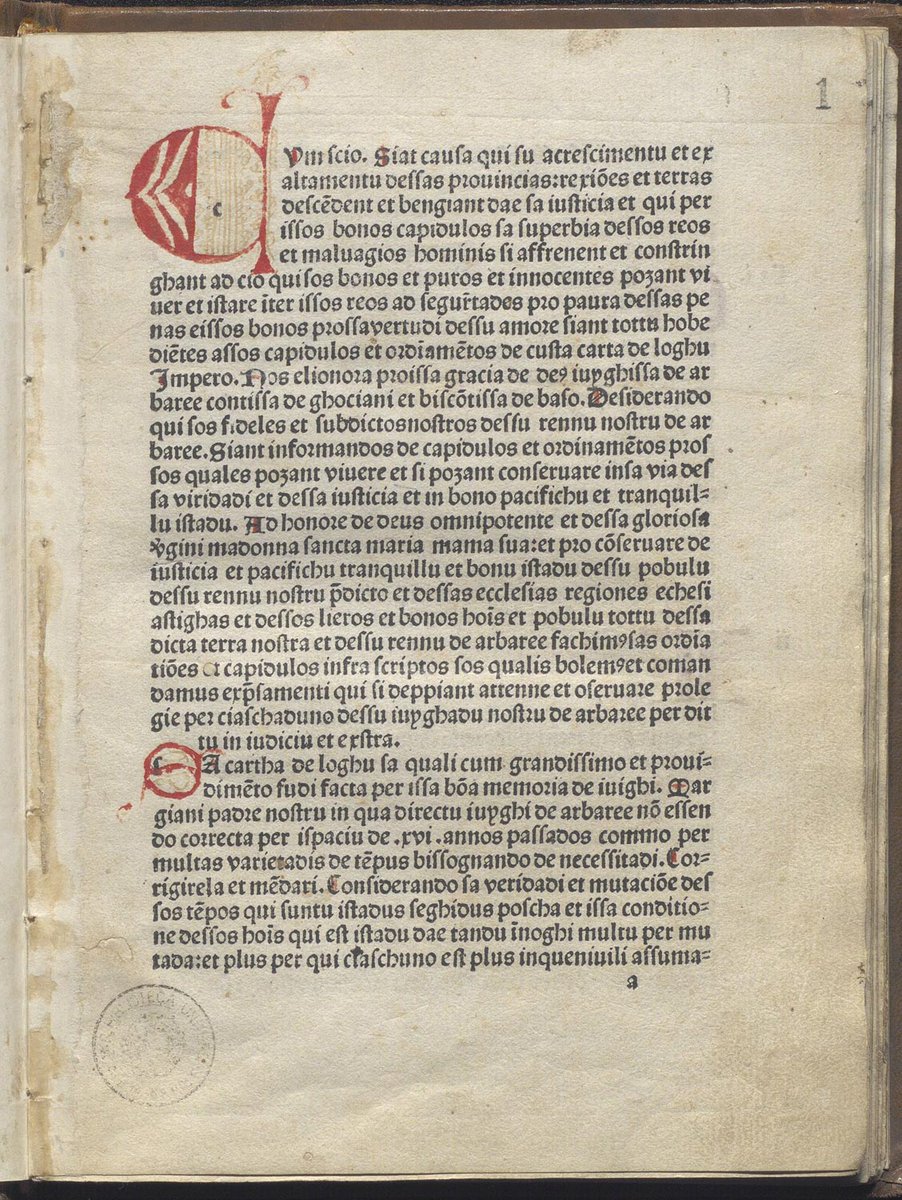 1
CVm scio. Siat causa qui su acrescimentu et ex
altamentu dessas prouincias: rexiōes et terras
descēdent et bengiant dae sa iusticia et qui per
issos bonos capidulos sa superbia dessos reos
et maluagios hominis si affrenent et constrin
ghant ad cio qui sos bonos et puros et innocentes pozant vi
uer et istare īter issos reos ad segur̄tades pro paura dessas pe
nas eissos bonos prossavertudi dessu amore siant totta hobe
diētes assos capidulos et ordīamētos de custa carta de loghu
Impero. Nos elionora proissa gracia de deꝰ iuyghissa de ar
baree contissa de ghociani et biscōtissa de baso. Desiderando
qui sos fideles et subdictosnostros dessu rennu nostru de ar
baree. Siant informandos de capidulos et ordinamētos pros
sos quales pozant viuere et si pozant conseruare insa via des
sa viridadi et dessa iusticia et in bono pacifichu et tranquil-
lu istadu. Ad honore de deus omnipotente et dessa gloriosa
v̄gini madonna sancta maria mama sua: et pro cōseruare de
iusticia et pacifichu tranquillu et bonu istadu dessu pobulu
dessu rennu nostru p̄dicto et dessas ecclesias regiones echesi
astighas et dessos lieros et bonos hoīs et pobulu tottu dessa
dicta terra nostra et dessu rennu de arbaree fachimꝰ sas ordīa
tiōes et capidulos infra scriptos sos qualis bolemꝰ et coman
damus exp̄samenti qui si deppiant attenne et oseruare prole
gie per ciaschaduno dessu iuyghadu nostru de arbaree per dit
tu in iudiciu et exstra.
SA cartha de loghu sa quali cum grandissimo et prouī-
dimēto fudi facta per issa bōa memoria de iuighi. Mar
giani padre nostru in qua directu iuyghi de arbaree nō essen
do correcta per ispaciu de .xvi. annos passados commo per
multas varietadis de tēpus bissognando de necessitadi. Cor-
rigirela et mēdari. Considerando sa veridadi et mutaciōe des
sos tēpos qui suntu istadus seghidus poscha et issa conditio-
ne dessos hoīs qui est istadu dae tandu īnoghi multu per mu
tada: et plus per qui ciaschuno est plus inqueniuili assuma-
a